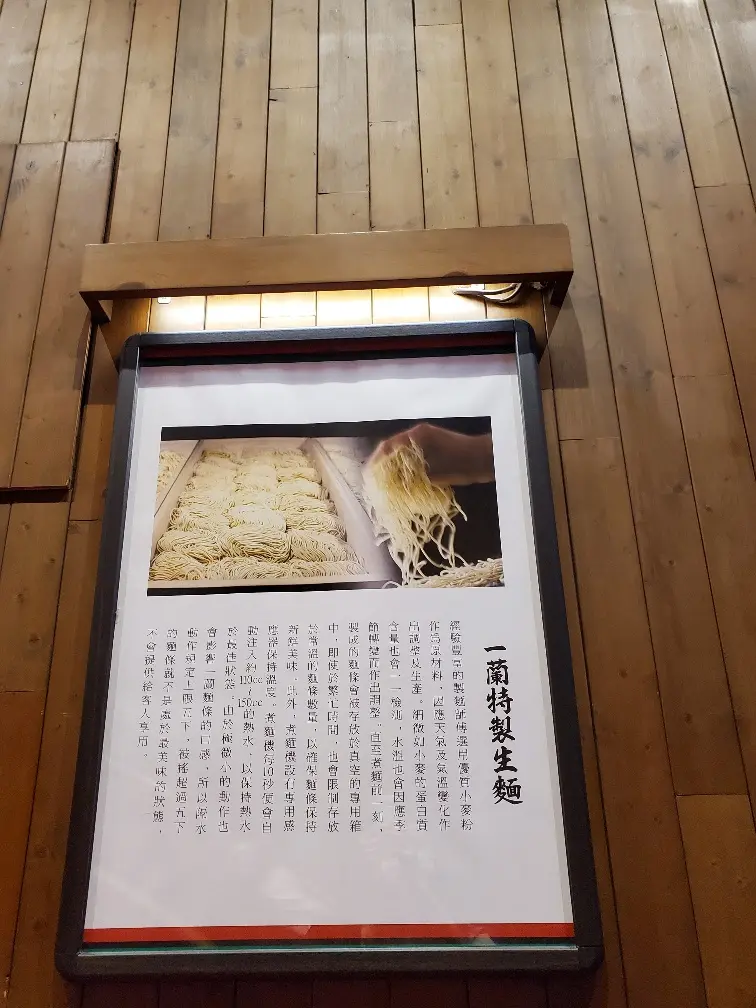 一蘭特製生麵
經驗豐富的製麵師傅選用優質小麥粉
作為原材料，因應天氣及氣溫變化作
出調整及生產。細微如小麥的蛋白質
含量也會一一檢測，水溫也會因應季
節轉變而作出調整。直至煮麵前一刻，
製成的麵條會被存放於真空的專用箱
中，即使於繁忙時間，也會限制存放
於常溫的麵條數量，以確保麵條保持
新鮮美味。此外，煮麵機設有專用感
應器保持溫度。煮麵機每10秒便會自
動注入約110cc/150cc的熱水，以保持熱水
於最佳狀態。由於極微小的動作也
會影響一蘭麵條的口感，所以隔水
動作規定上限五下，被搖超過五下
的麵條就不是處於最美味的狀態，
不會提供給客人享用。